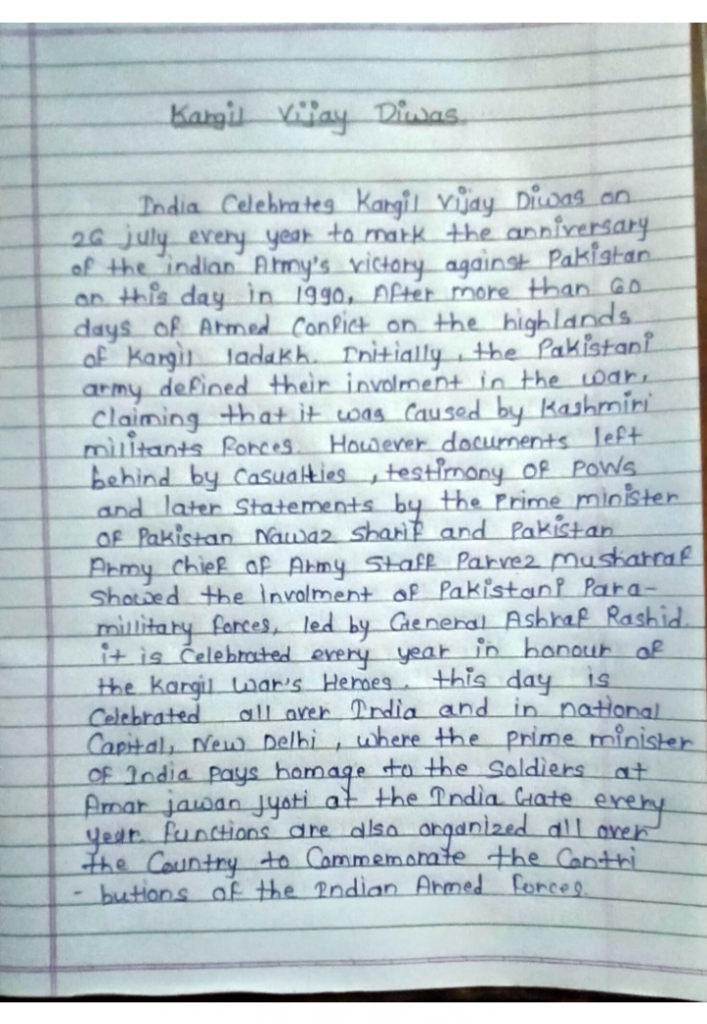 Kargil Vijay Diwas
India Celebrates Kargil Vijay Diwas on
26 july every year to mark the anniversary
of the indian Army's victory against Pakistan
on this day in 1990, After more than 60
days of Armed Conflict on the highlands
of Kargil ladakh. Initially, the Pakistani
army defined their involment in the war,
Claiming that it was Caused by Kashmiri
militants Forces. However documents left
behind by Casualties , testimony of POWs
and later Statements by the Prime minister
of Pakistan Nawaz Sharif and Pakistan
Army Chief of Army Staff Parvez Musharraf
Showed the Involment of Pakistani Para-
millitary forces, led by General Ashraf Rashid.
it is Celebrated every year in honour of
the Kargil War's Heroes. this day is
Celebrated all over India and in national
Capital, New Delhi , where the prime minister
of India pays homage to the Soldiers at
Amar jawan jyoti at the India Gate every
year. functions are also organized all over
the Country to Commemorate the Contri
- butions of the Indian Armed forces.